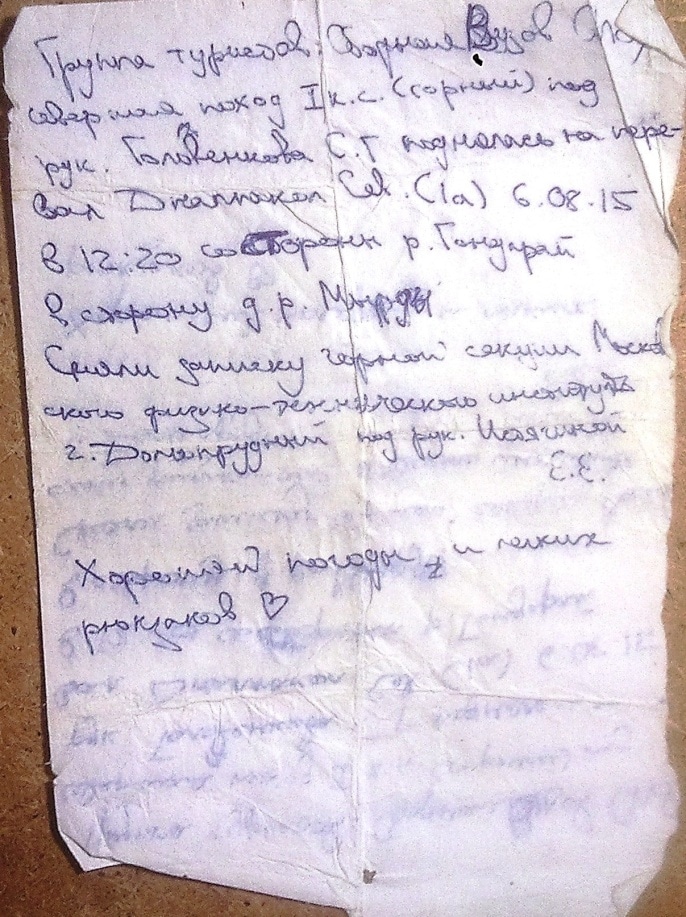 Группа туристов: Сборная Вузов
совершая поход I к.с. (горный) под
рук. Головенкова С.Г поднялась на пере-
вал Джалпакол Сев. (1а) 6.08.15
в 12:20 со стороны р. Гондарай
в сторону д.р. Мырды
Сняли записку горной секции Москов
ского физико-технического института
г. Долгопрудный под рук.
Е.Е.
Хорошей погоды и легких
рюкзаков ♡